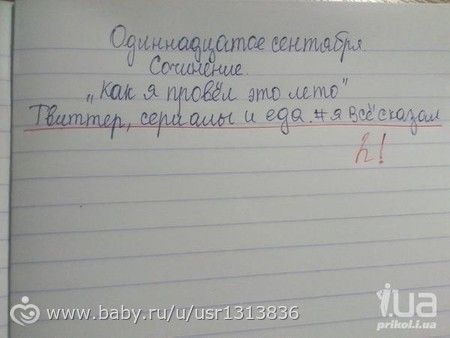 Одиннадцатое сентября.
Сочинение.
„Как я провёл это лето"
Твиттер, сериалы и еда. #я всё сказал
2!
www.baby.ru/u/usr1313836
i.ua
prikol.i.ua